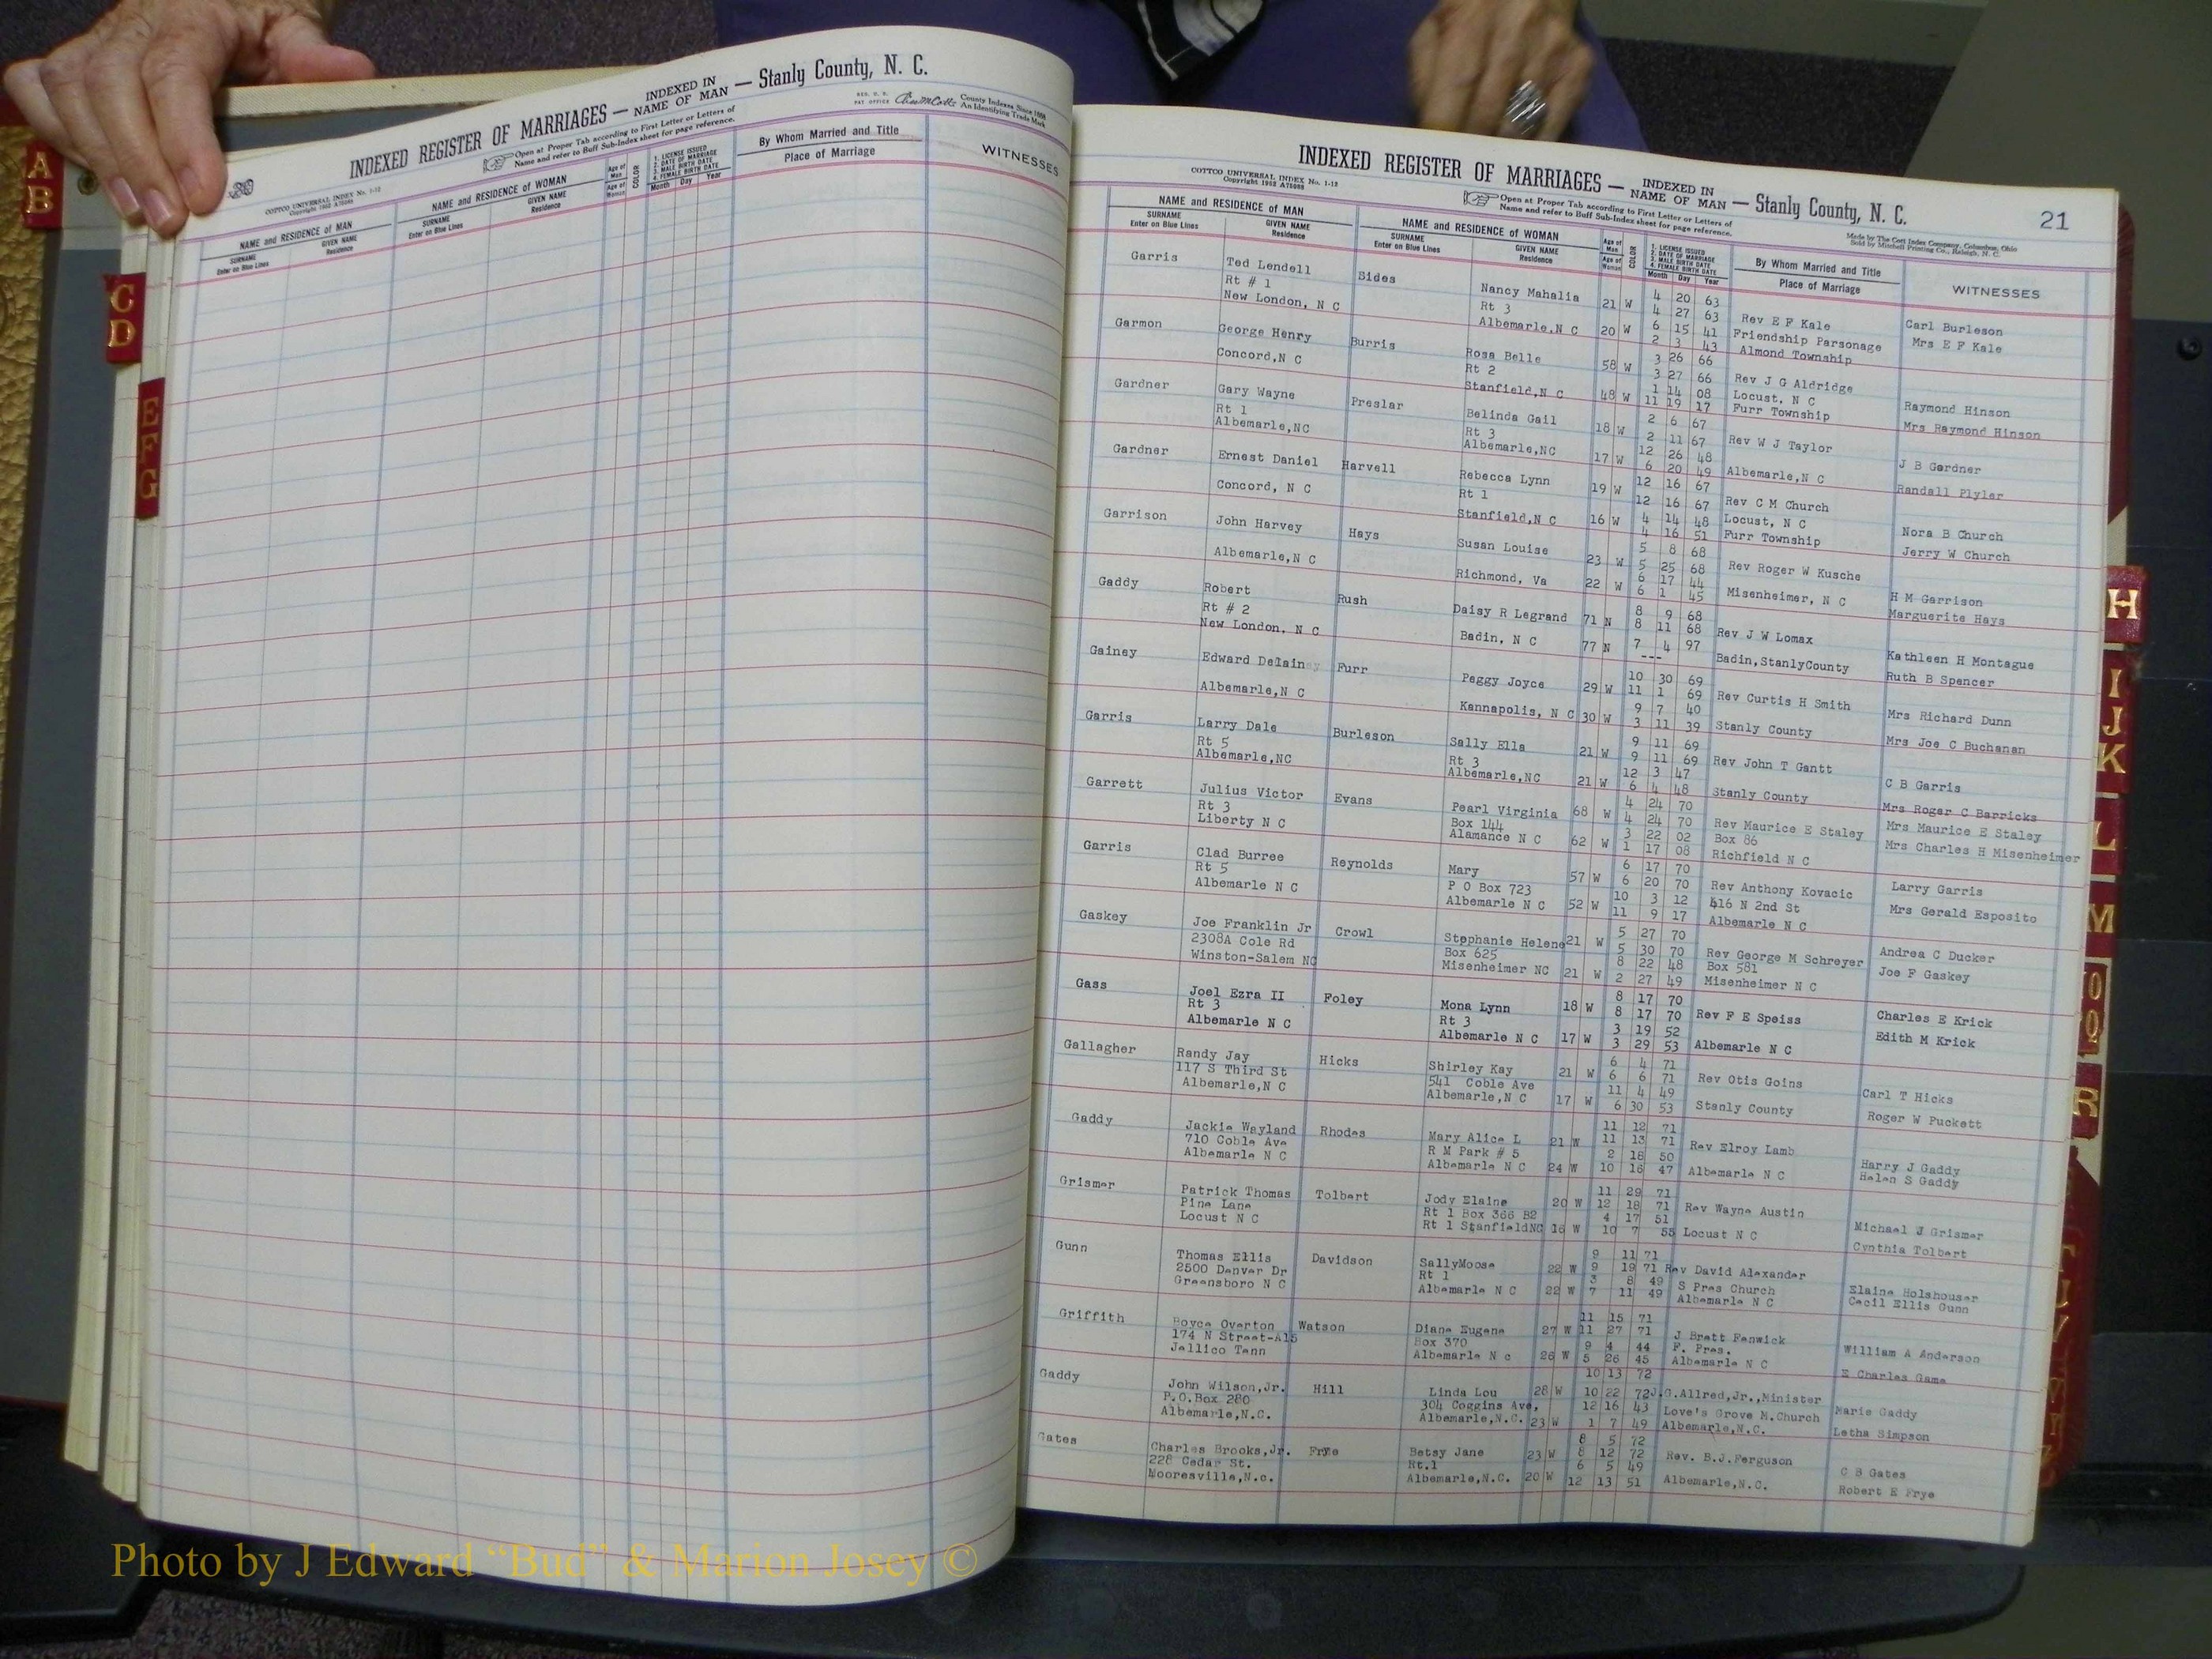 INDEXED REGISTER OF MARRIAGES — INDEXED IN NAME OF MAN — Stanly County, N. C.
COTTCO UNIVERSAL INDEX No. 1-12
Open at Proper Tab according to First Letter or Letters of
Name and refer to Buff Sub-Index sheet for page reference.
County Indexes Since 1888
An Identifying Trade Mark
NAME and RESIDENCE OF MAN
SURNAME
Enter on Blue Lines
GIVEN NAME
Residence
NAME and RESIDENCE OF WOMAN
SURNAME
Enter on Blue Lines
GIVEN NAME
Residence
Age of Man
Age of Woman
COLOR
1. LICENSE ISSUED
2. DATE OF MARRIAGE
3. MALE BIRTH DATE
4. FEMALE BIRTH DATE
Month Day Year
By Whom Married and Title
Place of Marriage
WITNESSES
A
B
C
D
E
F
G
INDEXED REGISTER OF MARRIAGES — INDEXED IN NAME OF MAN — Stanly County, N. C.
21
COTTCO UNIVERSAL INDEX No. 1-12
Open at Proper Tab according to First Letter or Letters of
Name and refer to Buff Sub-Index sheet for page reference.
Made by The Cott Index Company, Columbus, Ohio
Sold by Mitchell Printing Co., Raleigh, N. C.
NAME and RESIDENCE OF MAN
SURNAME
Enter on Blue Lines
GIVEN NAME
Residence
NAME and RESIDENCE OF WOMAN
SURNAME
Enter on Blue Lines
GIVEN NAME
Residence
Age of Man
Age of Woman
COLOR
1. LICENSE ISSUED
2. DATE OF MARRIAGE
3. MALE BIRTH DATE
4. FEMALE BIRTH DATE
Month Day Year
By Whom Married and Title
Place of Marriage
WITNESSES
Garris Ted Lendell Sides Nancy Mahalia 21 W 4 20 63 Rev E F Kale Carl Burleson
Rt # 1 Rt 3 4 27 63 Friendship Parsonage Mrs E F Kale
New London, N C Albemarle,N C 20 W 6 15 41 Almond Township
2 3 43
Garmon George Henry Burris Rosa Belle 58 W 3 26 66 Rev J G Aldridge Raymond Hinson
Rt 2 3 27 66 Locust, N C
Concord,N C Stanfield,N C 48 W 1 14 08 Furr Township Mrs Raymond Hinson
11 19 17
Gardner Gary Wayne Preslar Belinda Gail 18 W 2 6 67 Rev W J Taylor J B Gardner
Rt 1 Rt 3 2 11 67
Albemarle,NC Albemarle,NC 17 W 12 26 48 Albemarle,N C Randall Plyler
6 20 49
Gardner Ernest Daniel Harvell Rebecca Lynn 19 W 12 16 67 Rev C M Church Nora B Church
Rt 1 12 16 67 Locust, N C
Concord, N C Stanfield,N C 16 W 4 14 48 Furr Township Jerry W Church
4 16 51
Garrison John Harvey Hays Susan Louise 23 W 5 8 68 Rev Roger W Kusche H M Garrison
5 25 68
Albemarle,N C Richmond, Va 22 W 6 17 44 Misenheimer, N C Marguerite Hays
6 1 45
Gaddy Robert Rush Daisy R Legrand 71 N 8 9 68 Rev J W Lomax Kathleen H Montague
Rt # 2 8 11 68
New London, N C Badin, N C 77 N 7 4 97 Badin,StanlyCounty Ruth B Spencer
---
Gainey Edward Delainey Furr Peggy Joyce 29 W 10 30 69 Rev Curtis H Smith Mrs Richard Dunn
11 1 69
Albemarle,N C Kannapolis, N C 30 W 9 7 40 Stanly County Mrs Joe C Buchanan
3 11 39
Garris Larry Dale Burleson Sally Ella 21 W 9 11 69 Rev John T Gantt C B Garris
Rt 5 Rt 3 9 11 69
Albemarle,NC Albemarle,NC 21 W 12 3 47 Stanly County Mrs Roger C Barricks
6 4 48
Garrett Julius Victor Evans Pearl Virginia 68 W 4 24 70 Rev Maurice E Staley Mrs Maurice E Staley
Rt 3 Box 144 4 24 70 Box 86
Liberty N C Alamance N C 62 W 3 22 02 Richfield N C Mrs Charles H Misenheimer
1 17 08
Garris Clad Burree Reynolds Mary 57 W 6 17 70 Rev Anthony Kovacic Larry Garris
Rt 5 P O Box 723 6 20 70 416 N 2nd St
Albemarle N C Albemarle N C 52 W 10 3 12 Albemarle N C Mrs Gerald Esposito
11 9 17
Gaskey Joe Franklin Jr Crowl Stephanie Helene 21 W 5 27 70 Rev George M Schreyer Andrea C Ducker
2308A Cole Rd Box 625 5 30 70 Box 581
Winston-Salem NC Misenheimer NC 21 W 8 22 48 Misenheimer N C Joe F Gaskey
2 27 49
Gass Joel Ezra II Foley Mona Lynn 18 W 8 17 70 Rev F E Speiss Charles E Krick
Rt 3 Rt 3 8 17 70
Albemarle N C Albemarle N C 17 W 3 19 52 Albemarle N C Edith M Krick
3 29 53
Gallagher Randy Jay Hicks Shirley Kay 21 W 6 4 71 Rev Otis Goins Carl T Hicks
117 S Third St 541 Coble Ave 6 6 71
Albemarle,N C Albemarle,N C 17 W 11 4 49 Stanly County Roger W Puckett
6 30 53
Gaddy Jackie Wayland Rhodes Mary Alice L 21 W 11 12 71 Rev Elroy Lamb Harry J Gaddy
710 Coble Ave R M Park # 5 11 13 71
Albemarle N C Albemarle N C 24 W 2 18 50 Albemarle N C Helen S Gaddy
10 16 47
Grismer Patrick Thomas Tolbert Jody Elaine 20 W 11 29 71 Rev Wayne Austin Michael J Grismer
Pine Lane Rt 1 Box 366 B2 12 18 71
Locust N C Rt 1 StanfieldNC 16 W 4 17 51 Locust N C Cynthia Tolbert
10 7 55
Gunn Thomas Ellis Davidson SallyMoose 22 W 9 11 71 Rev David Alexander Elaine Holshouser
2500 Denver Dr Rt 1 9 19 71 S Pres Church
Greensboro N C Albemarle N C 22 W 3 8 49 Albemarle N C Cecil Ellis Gunn
7 11 49
Griffith Boyce Overton Watson Diane Eugene 27 W 11 15 71 J Brett Fenwick William A Anderson
174 N Street-A15 Box 370 11 27 71 F. Pres.
Jellico Tenn Albemarle N c 26 W 9 4 44 Albemarle N C E Charles Game
5 26 45
Gaddy John Wilson,Jr. Hill Linda Lou 28 W 10 13 72 J.G.Allred,Jr.,Minister Marie Gaddy
P.O.Box 280 304 Coggins Ave, 10 22 72 Love's Grove M.Church
Albemarle,N.C. Albemarle,N.C. 23 W 12 16 43 Albemarle,N.C. Letha Simpson
1 7 49
Gates Charles Brooks,Jr. Frye Betsy Jane 23 W 8 5 72 Rev. B.J.Ferguson C B Gates
228 Cedar St. Rt.1 8 12 72
Mooresville,N.c. Albemarle,N.C. 20 W 6 5 49 Albemarle,N.C. Robert E Frye
12 13 51
H
I
J
K
L
M
R
Photo by J Edward “Bud” & Marion Josey ©